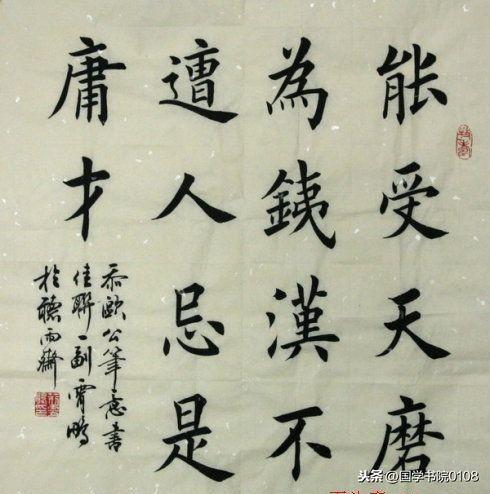 能受天磨
為銕漢不
遭人忌是
庸才
歐公筆意書
佳聯一副霄鵬
於聽雨齋
头条 @国学书院0108